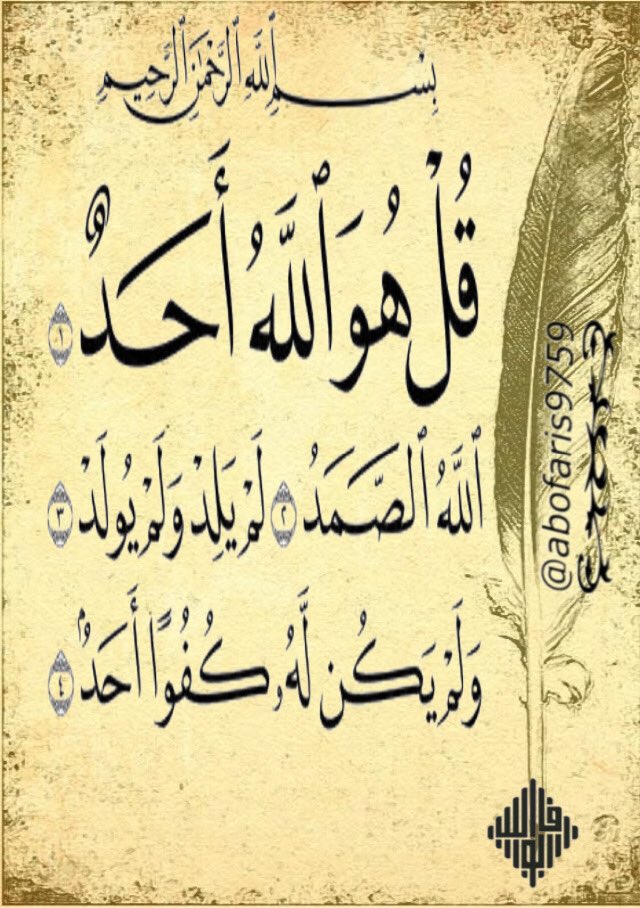 بِسْمِ ٱللَّهِ ٱلرَّحْمَٰنِ ٱلرَّحِيمِ
قُلْ هُوَ ٱللَّهُ أَحَدٌ ١
ٱللَّهُ ٱلصَّمَدُ ٢ لَمْ يَلِدْ وَلَمْ يُولَدْ ٣
وَلَمْ يَكُن لَّهُۥ كُفُوًا أَحَدٌۢ ٤
@abofaris9759